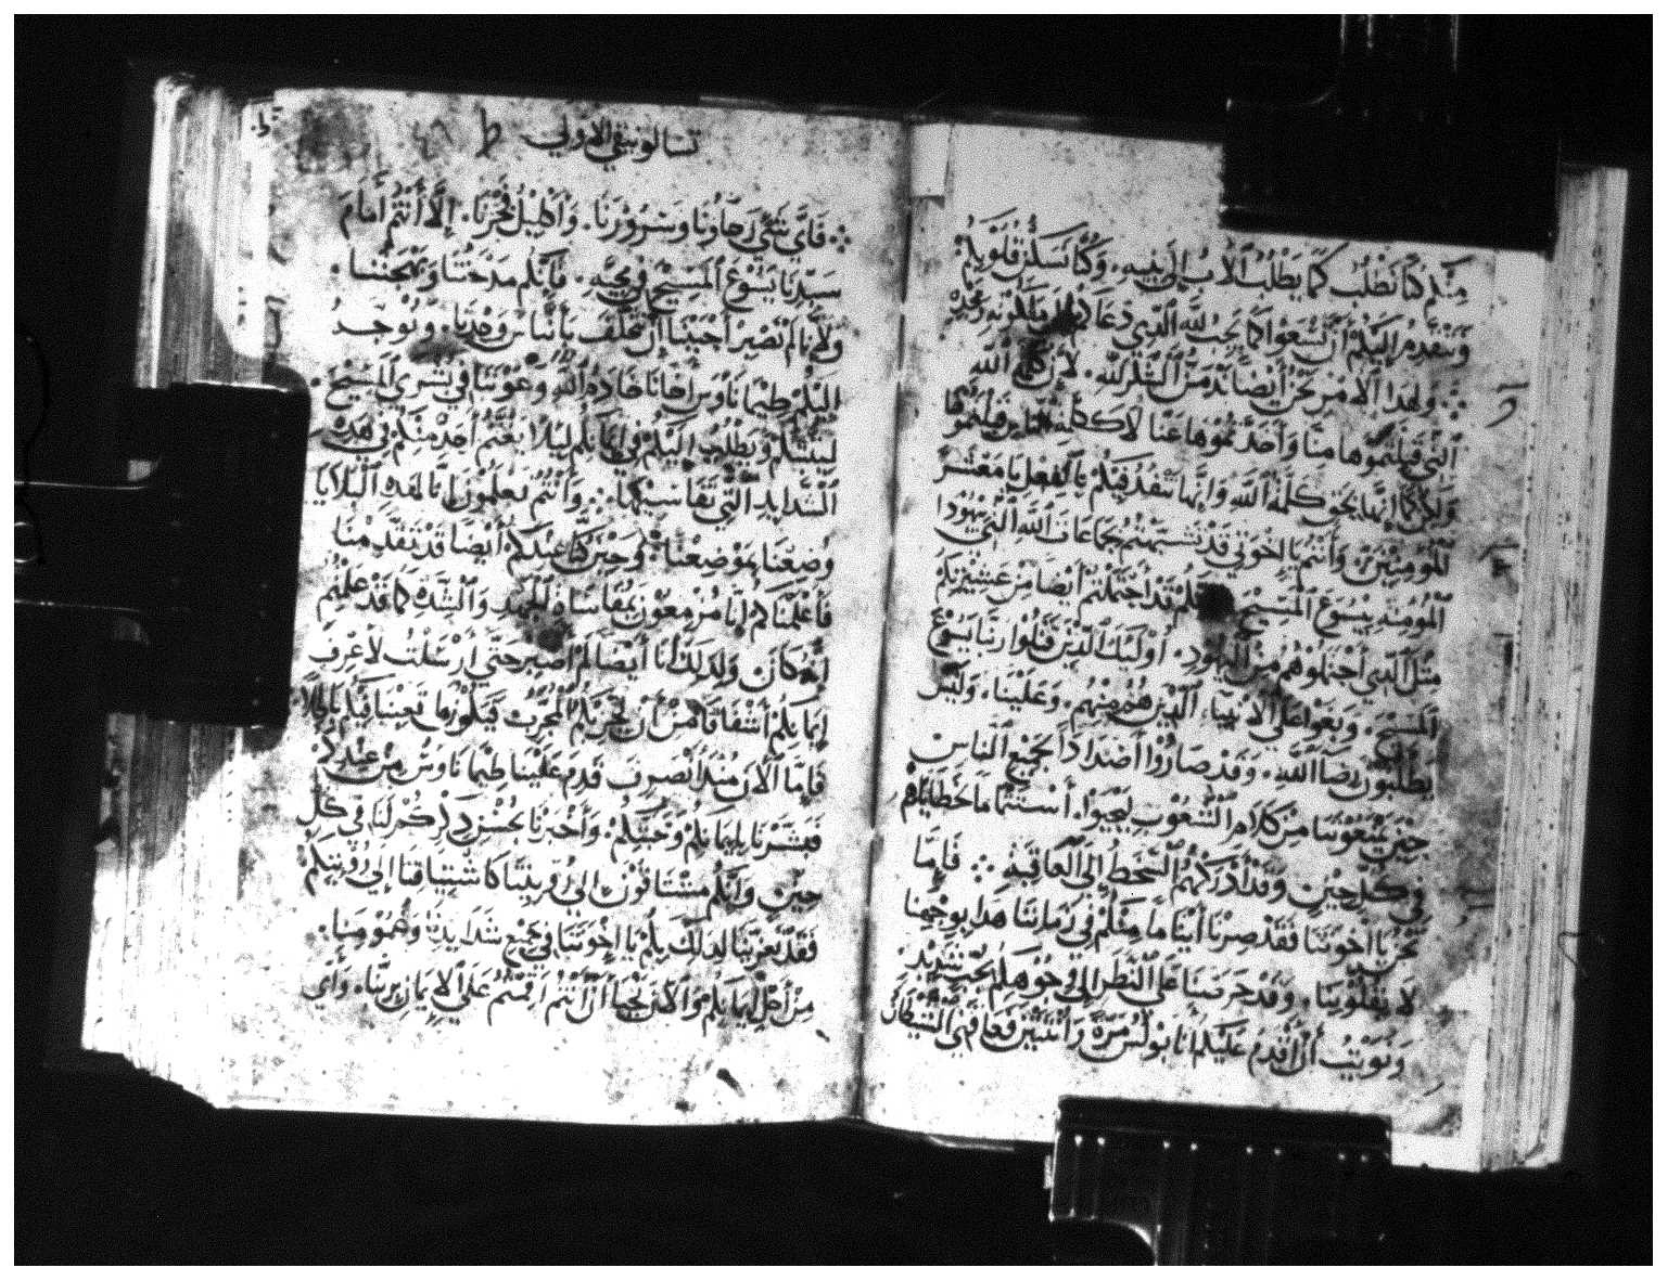 منكم كنا نطلب كما يطلب الأب الي بنيه. وكنا نسكن قلوبكم
ونتقدم اليكم أن تسعوا كما يجب لله الذي دعاكم ملكوته ومجده
ولهذا الامر نحن أيضا ندمن الشكر لله. لأن كلمة الله
التي قبلتموها منا وأخذتموها عنا لا ككلمة الناس قبلتموها
ولكن كما انها بحق كلمة الله وانها تنفد فيكم بالفعل يا معشر
المومنين وأنتم يا اخوتي قد تشبهتم بجماعات الله التي بيهودا
المومنه بيسوع المسيح قد احتملتم أيضا من عشيرتكم
مثل الذي احتملوا هم من اليهود. أوليك الذين قتلوا ربنا يسوع
المسيح. وبغوا على الانبياء الذين هم منهم. وعلينا. وليس
يطلبون رضا الله. وقد صاروا أضدادا لجميع الناس
حين يمنعوننا من كلام الشعوب ليحيوا. أستتماما لخطاياهم
في كل حين وقد أدركهم السخط الى العاقبة فاما
نحن يا اخوتنا فقد صرنا أيتاما منكم في زماننا هذا بوجوهنا
لا بقلوبنا. وقد حرصنا على النظر الى وجوهكم بحب شديد
ونويت أن أقدم عليكم انا بولس مرة وأثنتين فعاقني الشيطان
تسالونيقي الاولي
فاي شي رجاونا وسرورنا. وأكليل فخرنا. إلا أنتم أمام
سيدنا يسوع المسيح في مجيه. فانكم مدحتنا وبهجتنا.
ولأنا لم نصبر أحببنا أن نخلف بأثناس وحدنا. ونوجه
اليكم طيماتاوس اخانا خادم الله وعوننا في بشرى المسيح.
ليثبتكم ويطلب اليكم في إيمانكم ليلا يغتم أحد منكم في هذه
الشدايد التي تقاسيها. وأنتم تعلمون انا لهذه البلايا
وضعنا موضعنا. وحين كنا عندكم أيضا قد تقدمنا
فأعلمناكم إنا مزمعون بمقاساة الجهد والشدة كما قد علمتم
أنه كان ولذلك أنا أيضا لم أصبر حتي أرسلت لأعرف
إيمانكم أشفاقا من أن يجربكم المجرب فيكون ما تعبنا فيكم باطلا
فاما الآن منذ انصرف قدم علينا طيماتاوس من عندكم
فبشرنا بايمانكم ومحبتكم. وأخبرنا بحسن ذكركم لنا في كل
حين وانكم مشتاقون الي رويتنا كاشتياقنا إلى رويتكم
فقد تعزينا لذلك بكم يا إخوتنا في جميع شدايدنا وهمومنا.
من أجل ايمانكم والآن نحيا أن أنتم أقمتم على الايمان بربنا. وأي